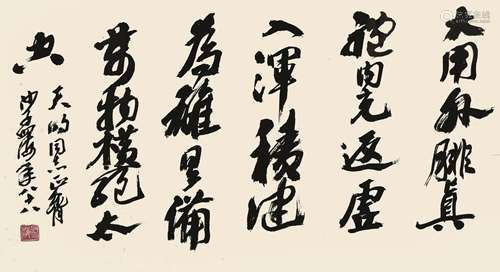 大用外腓真
體内充返虛
入渾積健
為雄具備
萬物橫絕太
空
同志正
沙孟海年八十八